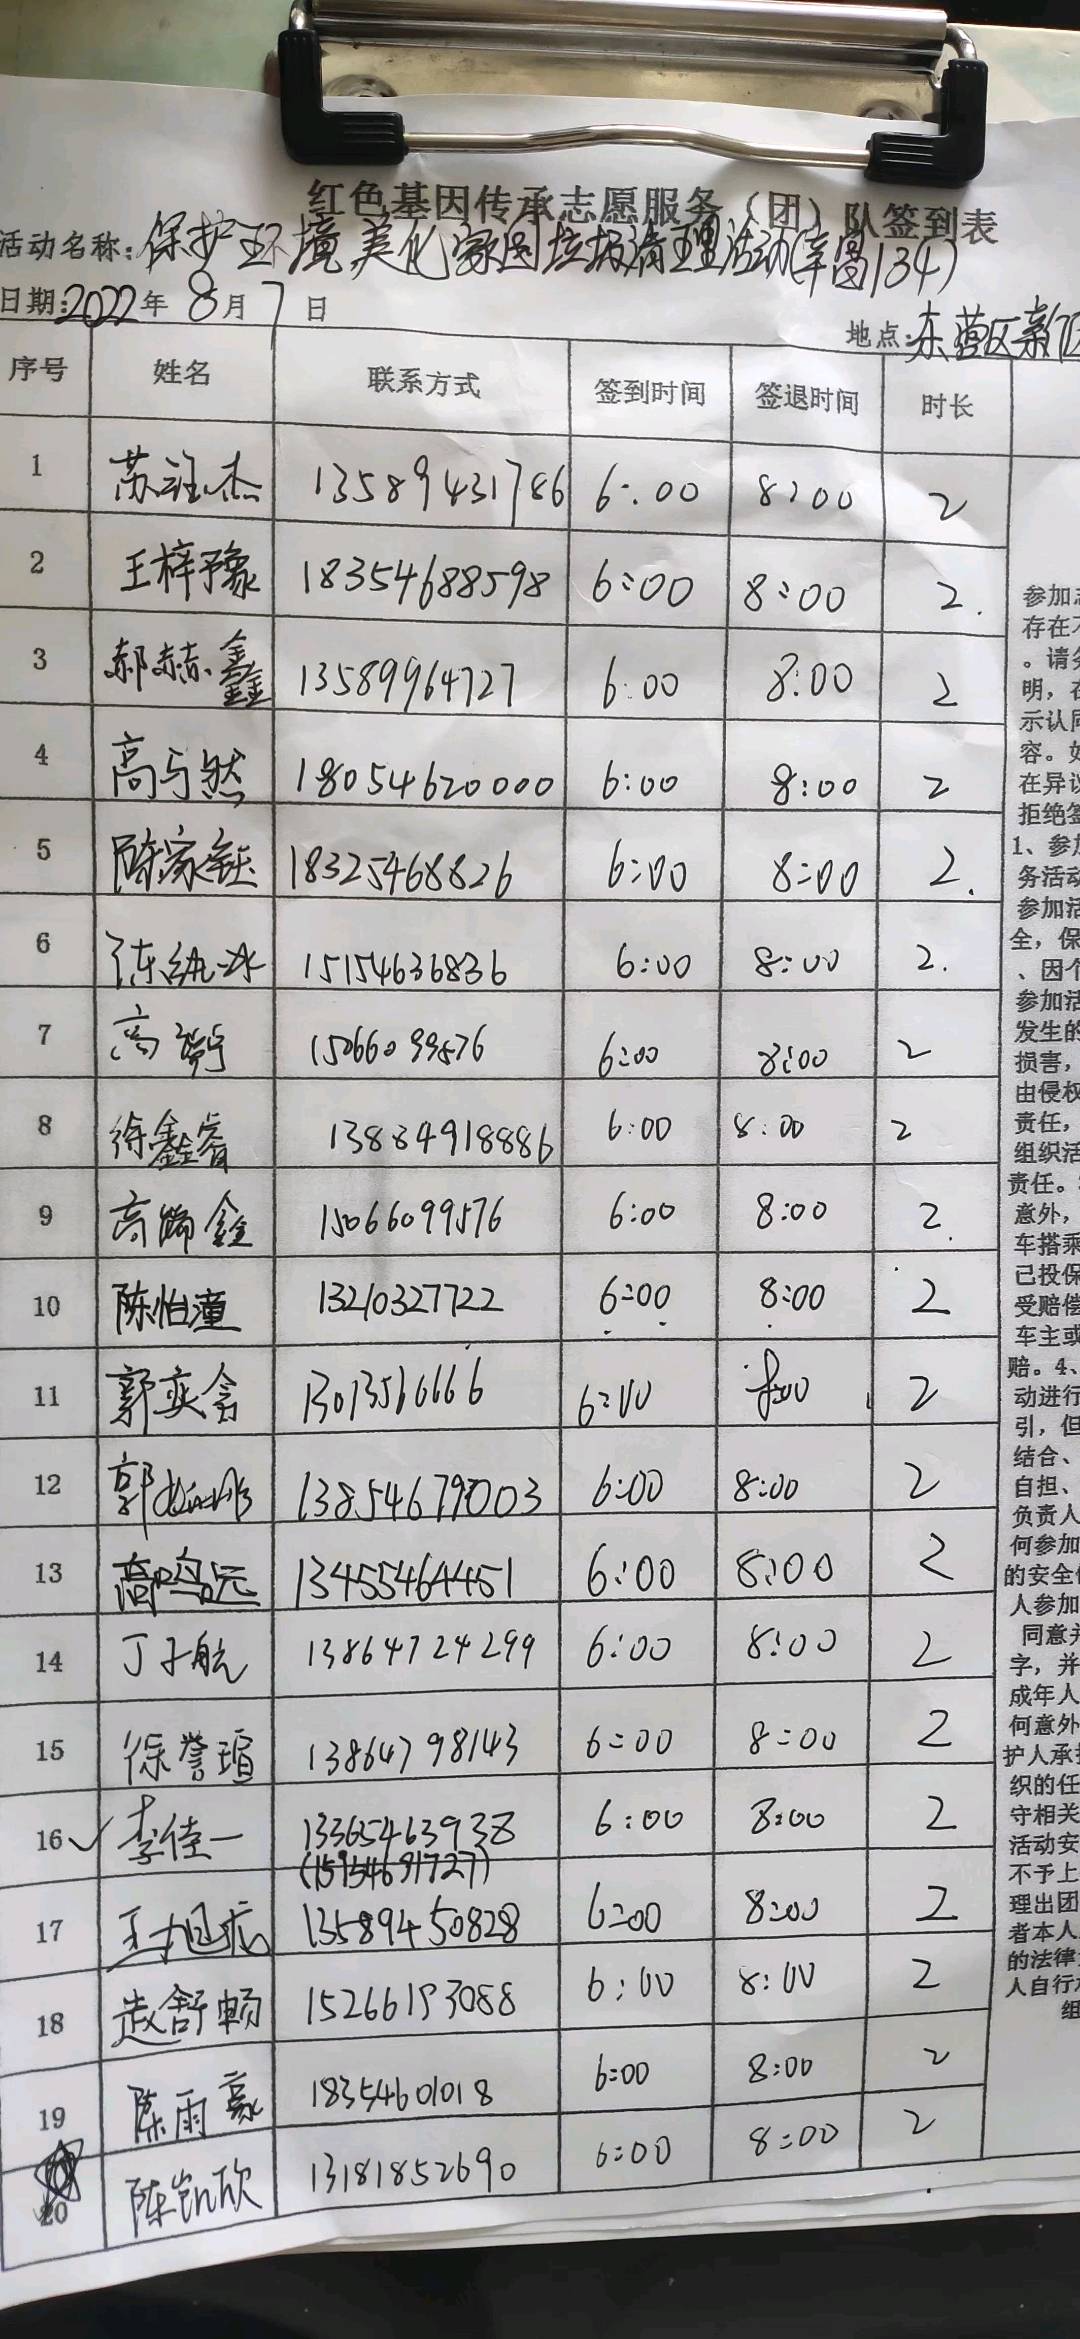 红色基因传承志愿服务（团）队签到表
活动名称：保护环境美化家园垃圾清理活动(辛营134)
日期：2022年8月7日
地点：东营区
序号 姓名 联系方式 签到时间 签退时间 时长
1 苏 杰 13589431786 6:00 8:00 2
2 王梓豫 18354688598 6:00 8:00 2.
3 郝赫鑫 13589964727 6:00 8:00 2
4 高与然 18054620000 6:00 8:00 2
5 陈家钰 18325468826 6:00 8:00 2.
6 冰 15154636836 6:00 8:00 2.
7 高 6:00 8:00 2
8 徐鑫睿 13834918886 6:00 8:00 2
9 高 鑫 15066099576 6:00 8:00 2.
10 陈怡潼 13210327722 6:00 8:00 2
11 郭奕含 6:00 8:00 2
12 郭 13854679003 6:00 8:00 2
13 高鸣远 13455464451 6:00 8:00 2
14 丁子航 13864724299 6:00 8:00 2
15 徐誉瑄 13864798143 6:00 8:00 2
16✓ 李佳一 13365463938 6:00 8:00 2
(15954691727)
17 王旭 13589450828 6:00 8:00 2
18 赵舒畅 15266193088 6:00 8:00 2
19 陈雨豪 18354601018 6:00 8:00 2
20 陈凯欣 13181852690 6:00 8:00 2
参加志
存在不
。请务
明，在
示认同
容。如
在异议
拒绝签
1、参加
务活动
参加活
全，保
、因个
参加活
发生的
损害，
由侵权
责任，
组织活
责任。
意外，
车搭乘
已投保
受赔偿
车主或
赔。4、
动进行
引，但
结合、
自担、
负责人
何参加
的安全
人参加
同意并
字，并
成年人
何意外
护人承担
织的任
守相关
活动安
不予上
理出团
者本人
的法律
人自行
组